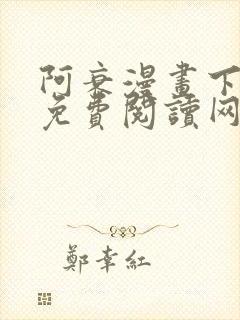 阿衰漫畫下
免費閱讀网
鄭幸紅